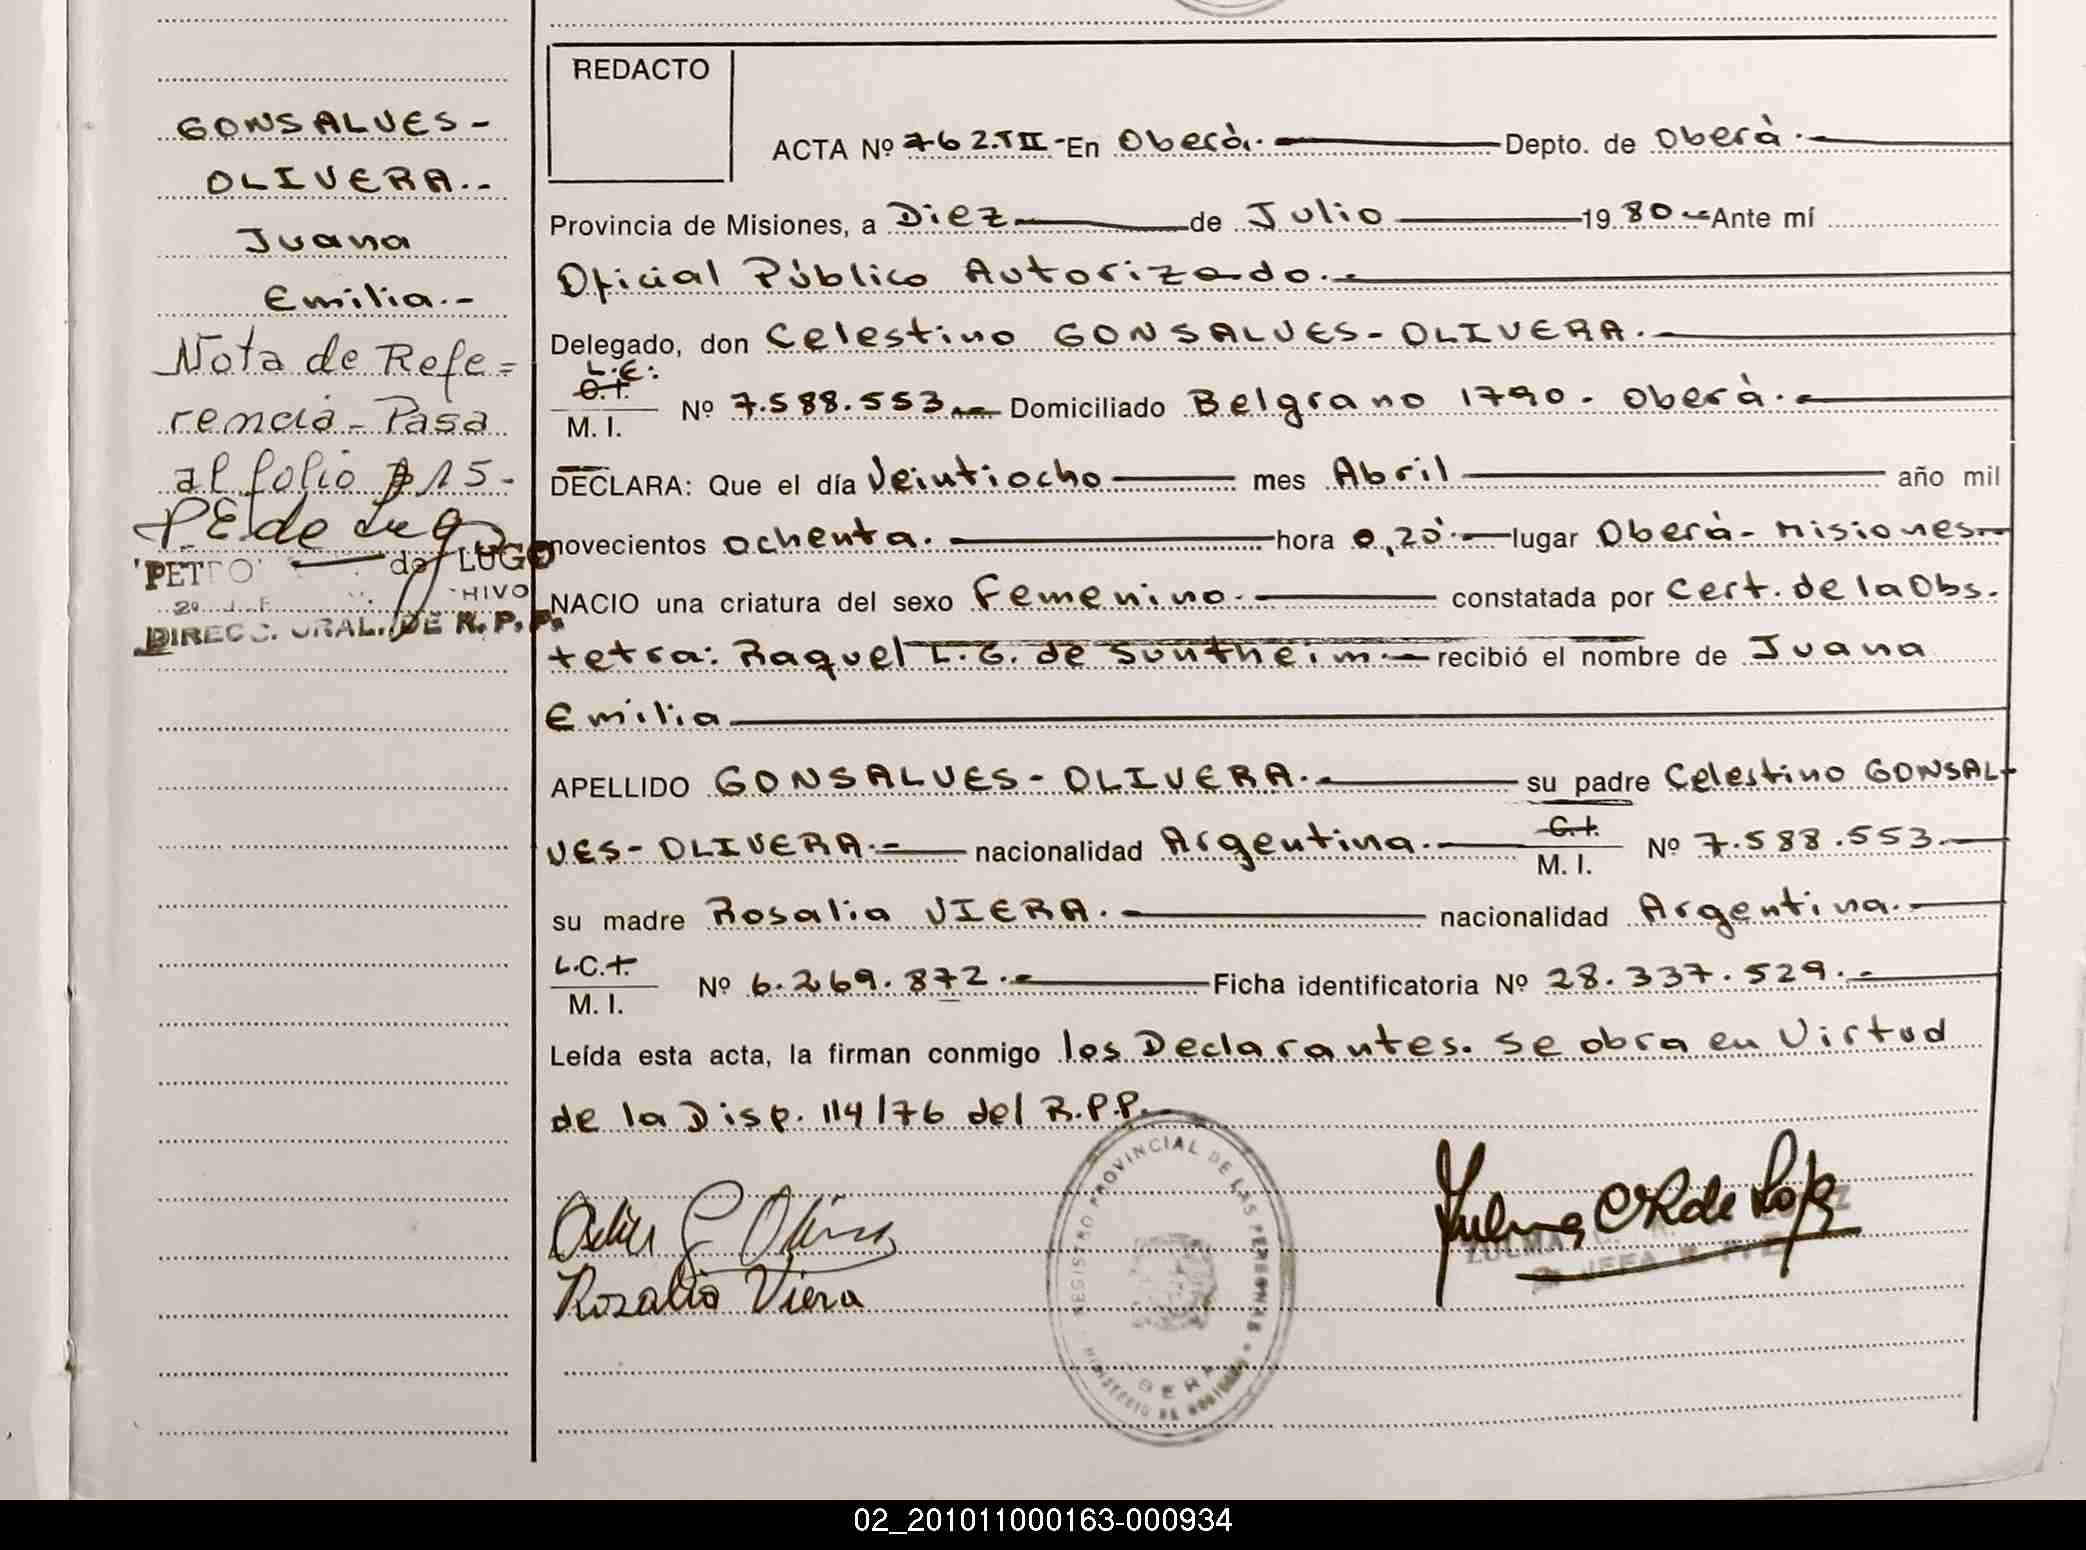 GONSALVES-
OLIVERA.-
Juana
Emilia.-
Nota de Refe=
rencia - Pasa
al folio 15-
de LUGO
HIVO
DIRECC. GRAL. DE R. P. P.
REDACTO
ACTA Nº 762.TII - En Oberá.- Depto. de Oberá.-
Provincia de Misiones, a Diez de Julio 19 80 - Ante mí
Oficial Público Autorizado.-
Delegado, don Celestino GONSALVES-OLIVERA.-
L.E:
C.I.
M. I. Nº 7.588.553.- Domiciliado Belgrano 1790. Oberá.-
DECLARA: Que el día Veintiocho mes Abril año mil
novecientos ochenta.- hora 0,20.- lugar Oberá-Misiones-
NACIO una criatura del sexo Femenino.- constatada por Cert. de la Obs.
tetra: Raquel L. G. de Sontheim.- recibió el nombre de Juana
Emilia
APELLIDO GONSALVES-OLIVERA.- su padre Celestino GONSAL-
VES-OLIVERA.- nacionalidad Argentina.- C.I. M. I. Nº 7.588.553.-
su madre Rosalia VIERA.- nacionalidad Argentina.-
L.C.I.
M. I. Nº 6.269.872.- Ficha identificatoria Nº 28.337.529.-
Leída esta acta, la firman conmigo los Declarantes. Se obra en Virtud
de la Disp. 114/76 del R.P.P.-
REGISTRO PROVINCIAL DE LAS PERSONAS
MINISTERIO DE GOBIERNO
OBERA
Olivera
Rozalia Viera
Zulma de
ZULMA
JEFA
02_201011000163-000934